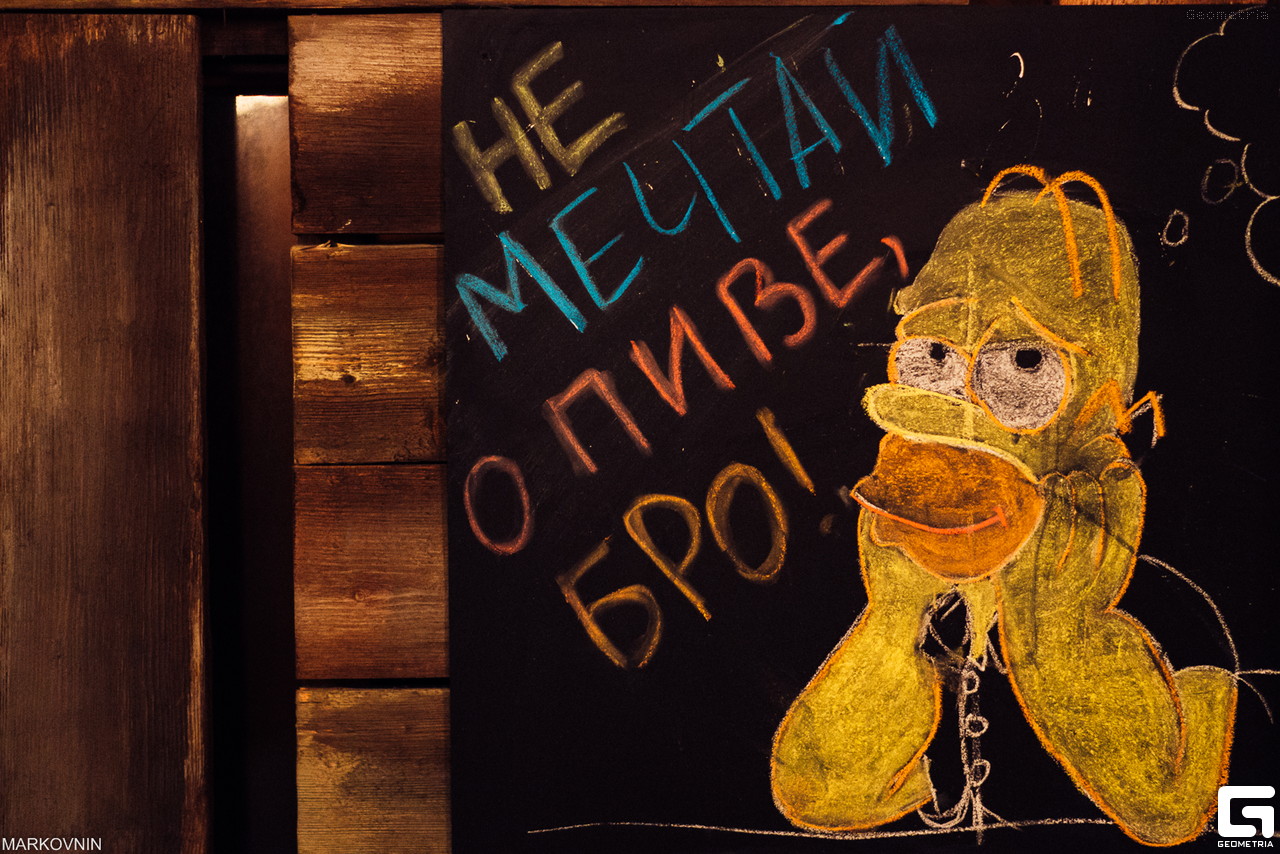 Geometria
НЕ
МЕЧТАЙ
О ПИВЕ,
БРО!
MARKOVNIN
GEOMETRIA